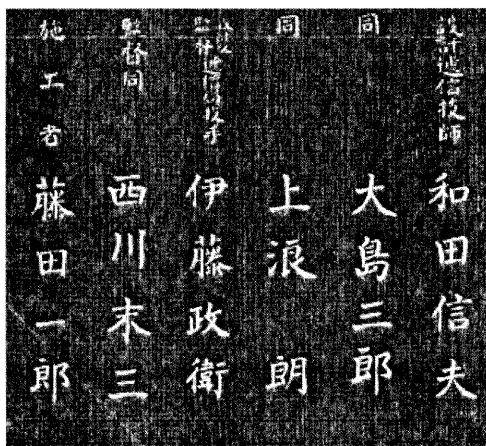 設計逓信技師 和田信夫
同 大島三郎
同 上浪朗
設計及監督逓信技手 伊藤政衛
監督同 西川末三
施工者 藤田一郎